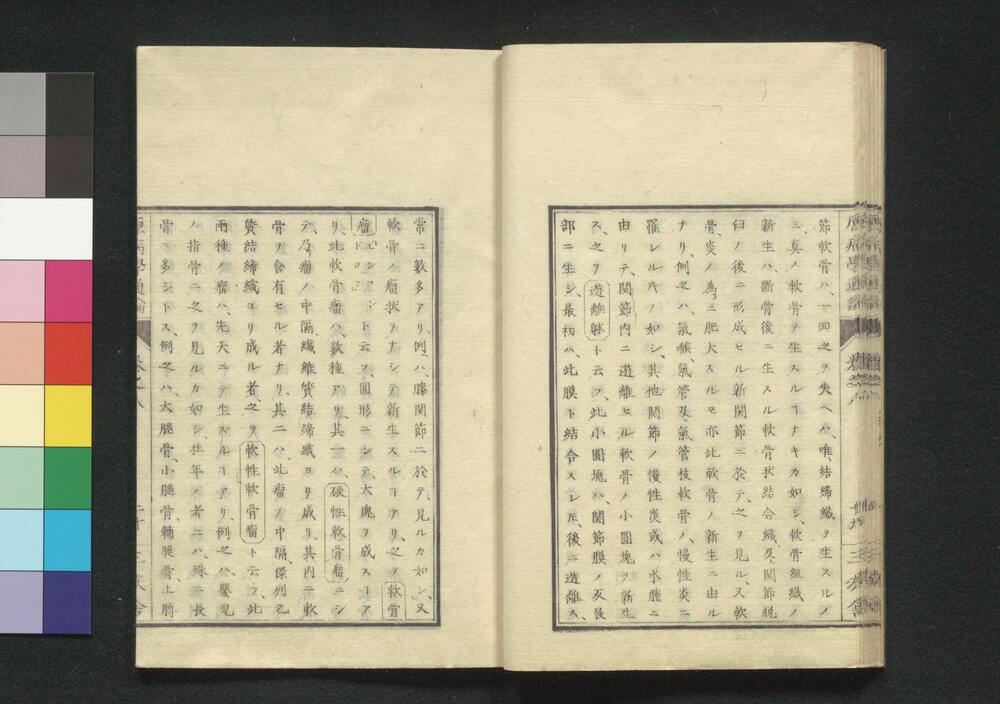 節軟骨ハ、一回之ヲ失ヘハ、唯結締織ヲ生スルノ
ミ、真ノ軟骨ヲ生スルヿナキカ如シ、軟骨組織ノ
新生ハ、斷骨後ニ生スル軟骨状結合織及ヒ関節脱
臼ノ後ニ形成セル新関節ニ於テ、之ヲ見ル、又軟
骨炎ノ為ニ肥大スルモ亦此軟骨ノ新生ニ由ル
ナリ、例之ハ、氣喉、氣管及ヒ氣管枝軟骨ノ慢性炎ニ
罹レルキノ如シ、其他関節ノ慢性炎或ハ水腫ニ
由リテ、関節内ニ遊離セル軟骨ノ小圓塊ヲ新生
ス、之ヲ遊離躰ト云フ、此小圓塊ハ、関節膜ノ皮長
部ニ生シ、最初ハ、此膜ト結合スレ𪜈、後ニ遊離ス、
原病學通論
常ニ數多アリ、例ハ、膝関節ニ於テ見ルカ如シ、又
軟骨ノ瘤状ヲナシテ新生スルヿアリ、之ヲ軟骨
瘤ト云フ、圓形ニシテ、大塊ヲ成スヿア
リ、此軟骨瘤ハ、數種アリ、其一ハ、硬性軟骨瘤ニシ
テ、乃瘤ノ中隔纖維質結締織ヨリ成リ、其内ニ軟
骨ヲ含有セル者ナリ、其二ハ、此瘤ノ中隔、傑列乙
質結締織ヨリ成ル者、之ヲ軟性軟骨瘤ト云フ、此
兩種ノ瘤ハ、先天ニテ生スルヿアリ、例之ハ、嬰児
ノ指骨ニ之ヲ見ルカ如シ、壮年ノ者ニハ、殊ニ長
骨ニ多シトス、例之ハ、大腿骨、小腿骨、輔腿骨、上膊